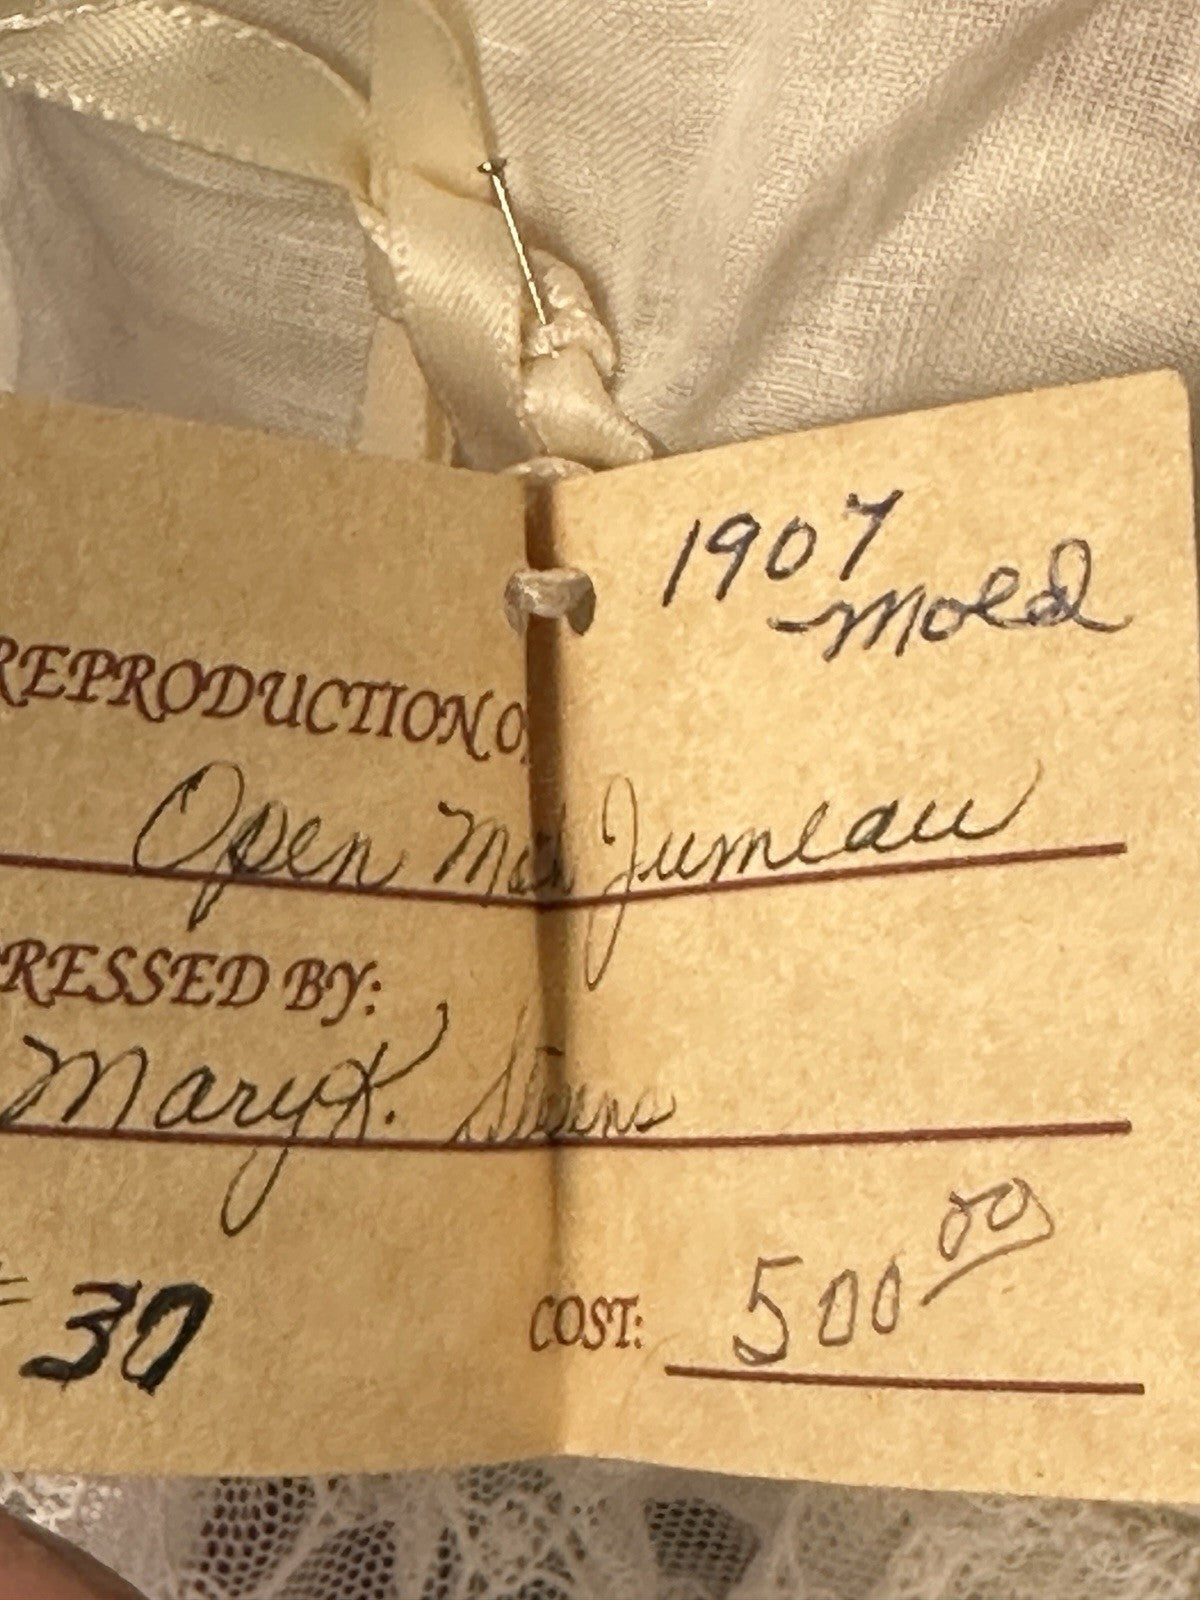 1907
Mold
REPRODUCTION O
Open Jumeau
RESSED BY:
Mary K.
30
COST: 500 00